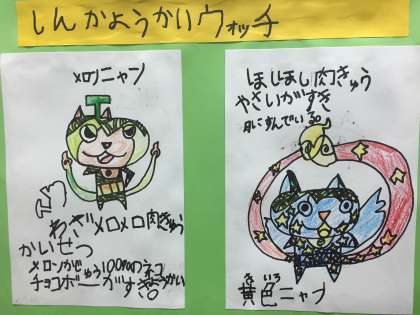 しんかようかいウォッチ
メロンニャン
わざメロメロ肉きゅう
かいせつ
メロンがじゅう100%のネコ
チョコボーがすきようかい
ほしほし肉きゅう
やさいがすき
月にすんでいる。
黄色ニャン
きいろ